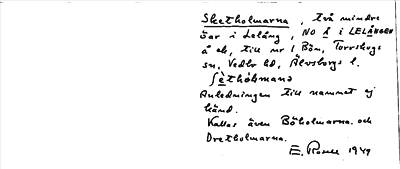 Sketholmarna, två mindre
öar i Lelång, NO Å i LELÅNGEN
å ek, till nr 1 Bön, Torrskogs
sn, Vedbo hd, Älvsborgs l.
Anledningen till namnet ej
känd.
Kallas även Böholmarna och
Dretholmarna.
E. Rosell 1949